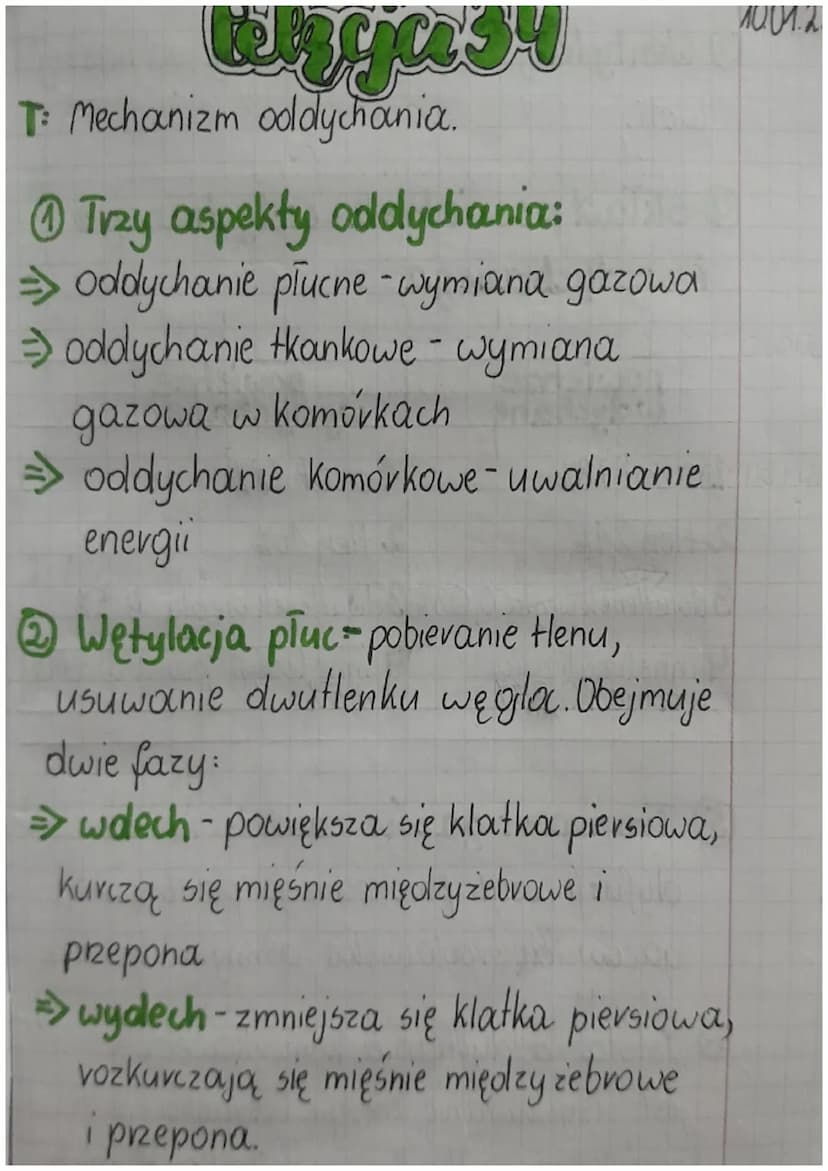 Lekcja 34
10.01.2
T: Mechanizm oddychania.
① Trzy aspekty oddychania:
⇒ oddychanie płucne - wymiana gazowa
⇒ oddychanie tkankowe - wymiana
gazowa w komórkach
⇒ oddychanie komórkowe - uwalnianie
energii
② Wętylacja płuc - pobieranie tlenu,
usuwanie dwutlenku węgla. Obejmuje
dwie fazy:
⇒ wdech - powiększa się klatka piersiowa,
kurczą się mięśnie międzyżebrowe i
przepona
⇒ wydech - zmniejsza się klatka piersiowa,
rozkurczają się mięśnie międzyżebrowe
i przepona.